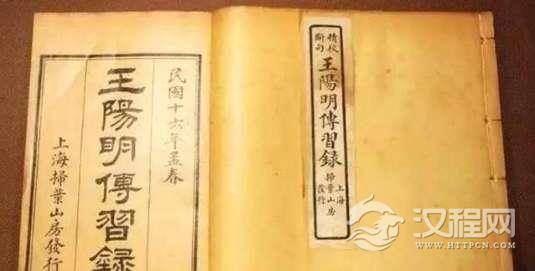 精校
斷句
王陽明傳習錄
上海
掃葉山房
發行
民國十六年孟春
王陽明傳習錄
上海掃葉山房發行
汉程网
WWW.HTTPCN.COM